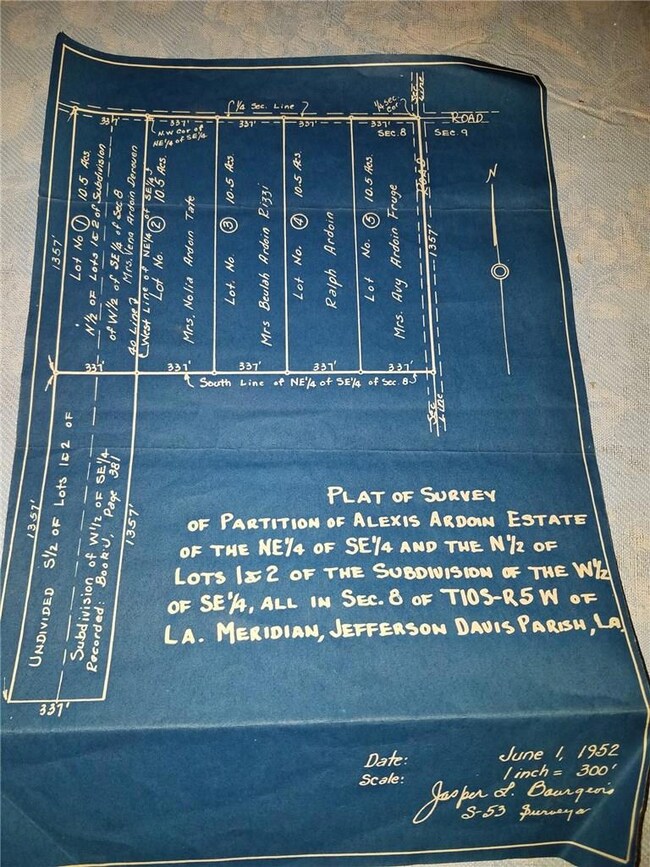 Sec.
Line
¼ Sec. Line
¼ Sec.
Cor
ROAD
337'
337'
337'
337'
337'
N.W. Cor of
NE¼ of SE¼
SEC. 8
SEC. 9
ROAD
N
1357'
Lot No. ① 10.5 Acs.
N½ of Lots 1&2 of Subdivision
of W½ of SE¼ of Sec. 8
Mrs. Vena Ardoin Derouen
40 Line
West Line of NE¼ of SE¼
Lot No. ② 10.5 Acs.
Mrs. Nolia Ardoin Tate
Lot No. ③ 10.5 Acs.
Mrs Beulah Ardoin Rizzi
Lot No. ④ 10.5 Acs.
Ralph Ardoin
Lot No. ⑤ 10.5 Acs.
Mrs. Avy Ardoin Fruge
1357'
337'
337'
337'
337'
337'
South Line of NE¼ of SE¼ of Sec. 8
Sec
Line
1357'
UNDIVIDED S½ OF LOTS 1&2 OF
Subdivision of W½ of SE¼
Recorded: Book J, Page 381
1357'
337'
PLAT OF SURVEY
OF PARTITION OF ALEXIS ARDOIN ESTATE
OF THE NE¼ OF SE¼ AND THE N½ OF
LOTS 1&2 OF THE SUBDIVISION OF THE W½
OF SE¼, ALL IN SEC. 8 OF T10S-R5W OF
LA. MERIDIAN, JEFFERSON DAVIS PARISH, LA.
Date: June 1, 1952
Scale: 1 inch = 300'
Jasper L. Bourgeois
S-53 Surveyor